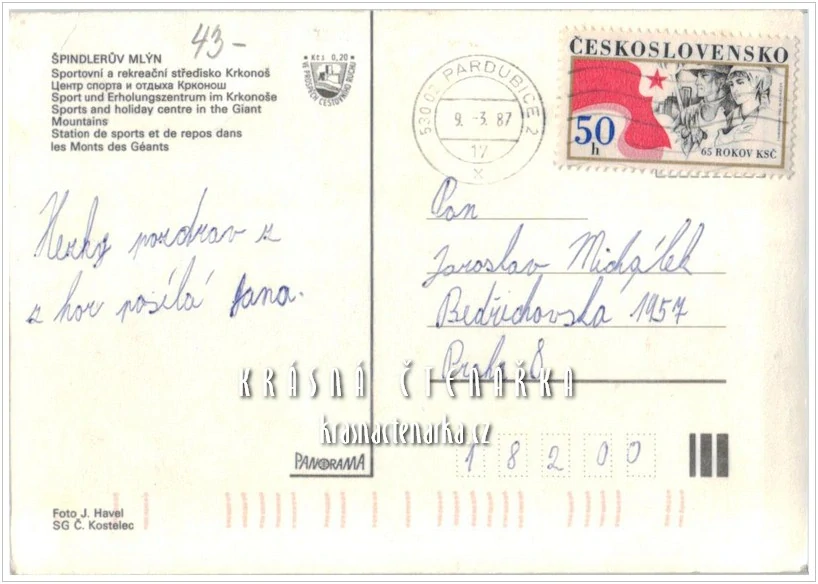 43-
ŠPINDLERŮV MLÝN
Sportovní a rekreační středisko Krkonoš
Центр спорта и отдыха Крконош
Sport und Erholungszentrum im Krkonoše
Sports and holiday centre in the Giant
Mountains
Station de sports et de repos dans
les Monts des Géants
Kčs 0,20
VE PROSPĚCH CESTOVNÍHO RUCHU
530 02 PARDUBICE 2
9. -3. 87
17
x
ČESKOSLOVENSKO
50
h
65 ROKOV KSČ
Hezky pozdrav z
z hor posílá Jana.
Pan
Jaroslav Michálek
Bedřichovska 1957
Praha 8
KRÁSNÁ ČTENÁŘKA
krasnactenarka.cz
PANORAMA
18200
Foto J. Havel
SG Č. Kostelec